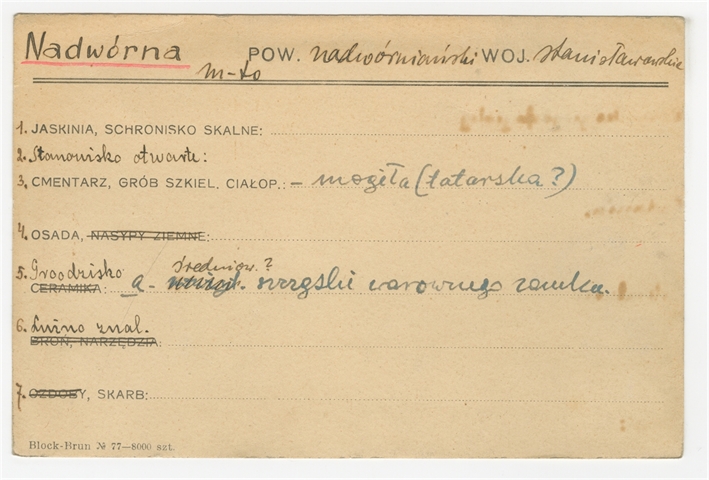 Nadwórna POW. nadwórniański WOJ. stanisławowskie
m-to
1. JASKINIA, SCHRONISKO SKALNE:
2. Stanowisko otwarte:
3. CMENTARZ, GRÓB SZKIEL. CIAŁOP.: – mogiła (tatarska?)
4. OSADA, NASYPY ZIEMNE:
5. Groodzisko średniow.?
CERAMIKA: a - szczątki warownego zamku.
6. Luźno znal.
BROŃ, NARZĘDZIA:
7. OZDOBY, SKARB:
Block-Brun № 77—8000 szt.